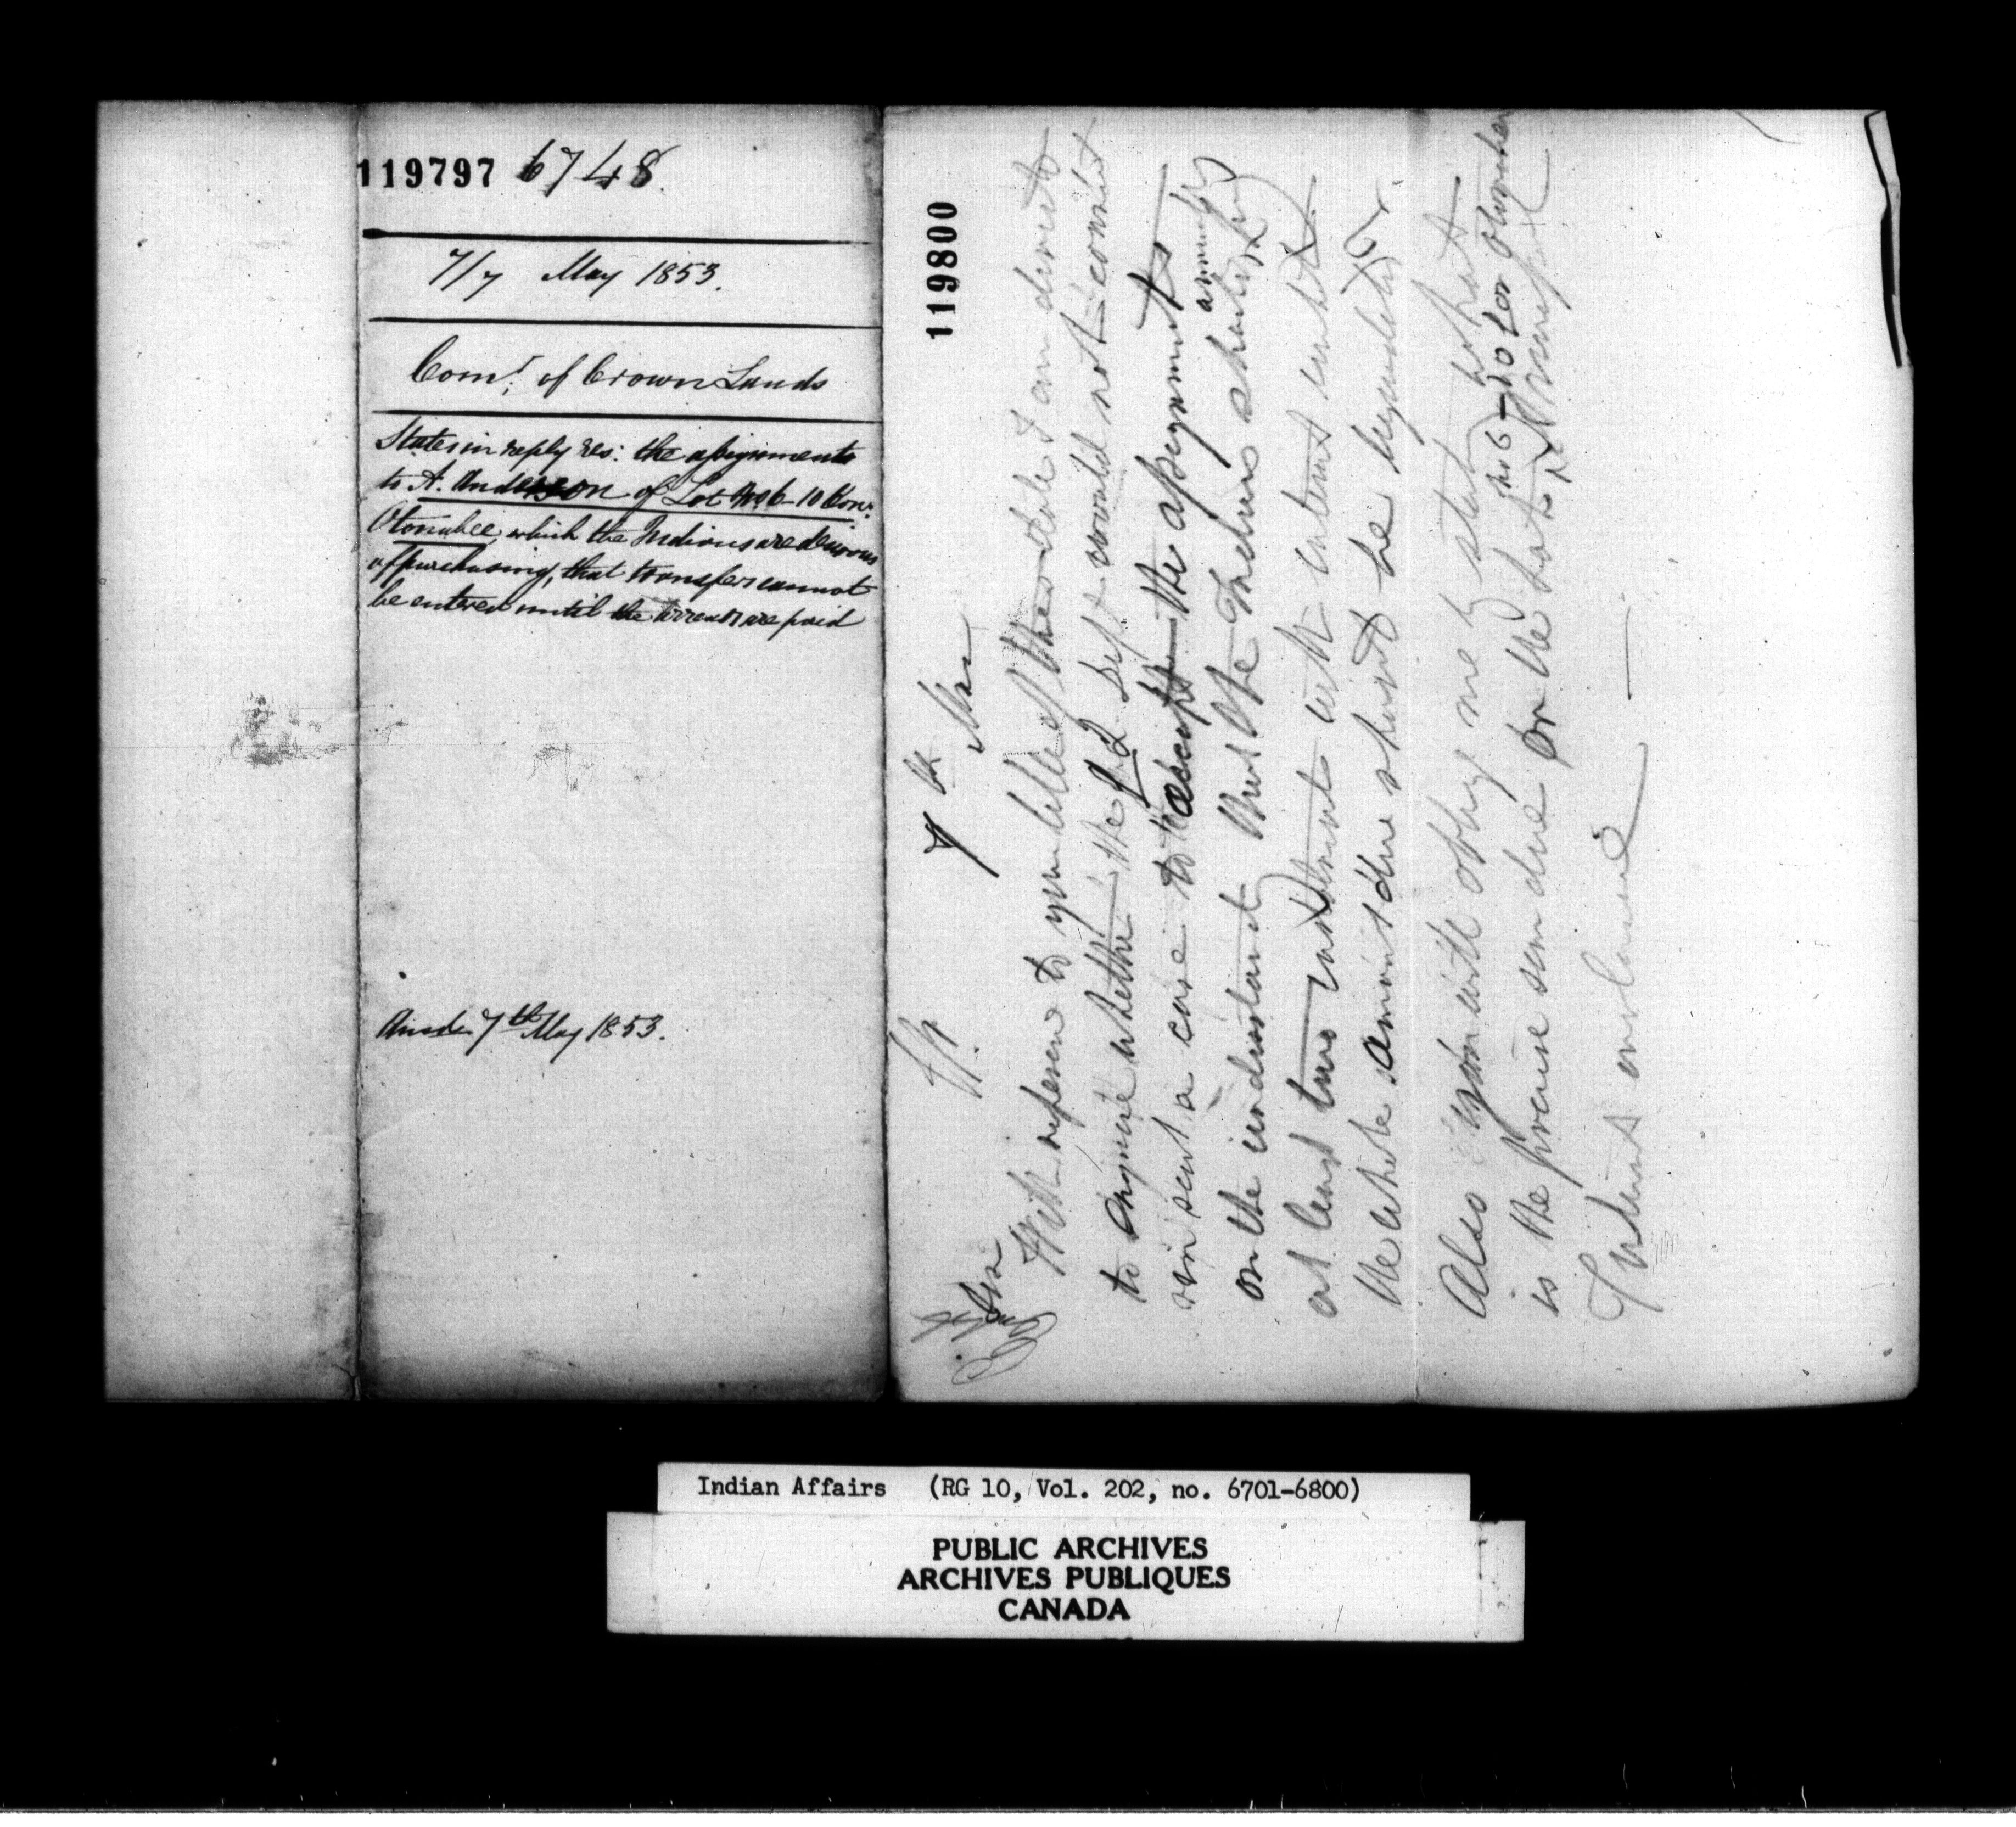 119797 6748
7/7 May 1853.
Comr. of Crown Lands
States in reply res: the assignments
to A. Anderson of Lot No 6-10 Con:
Otonabee, which the Indians are desirous
of purchasing, that transfer cannot
be entered until the arrears are paid
Ansd 7th May 1853.
119800
7th May
Sir
With reference to your letter of this date I am directed
to enquire whether the Dept would not consent
in such a case to accept the assignments
on the understanding that the Indians should annually pay
at least two instalments with interest until
the whole amount due should be liquidated
Also you will oblige me by stating what
is the precise sum due on the Lot No 6-10 Con Otonabee
Indians
Indian Affairs (RG 10, Vol. 202, no. 6701-6800)
PUBLIC ARCHIVES
ARCHIVES PUBLIQUES
CANADA